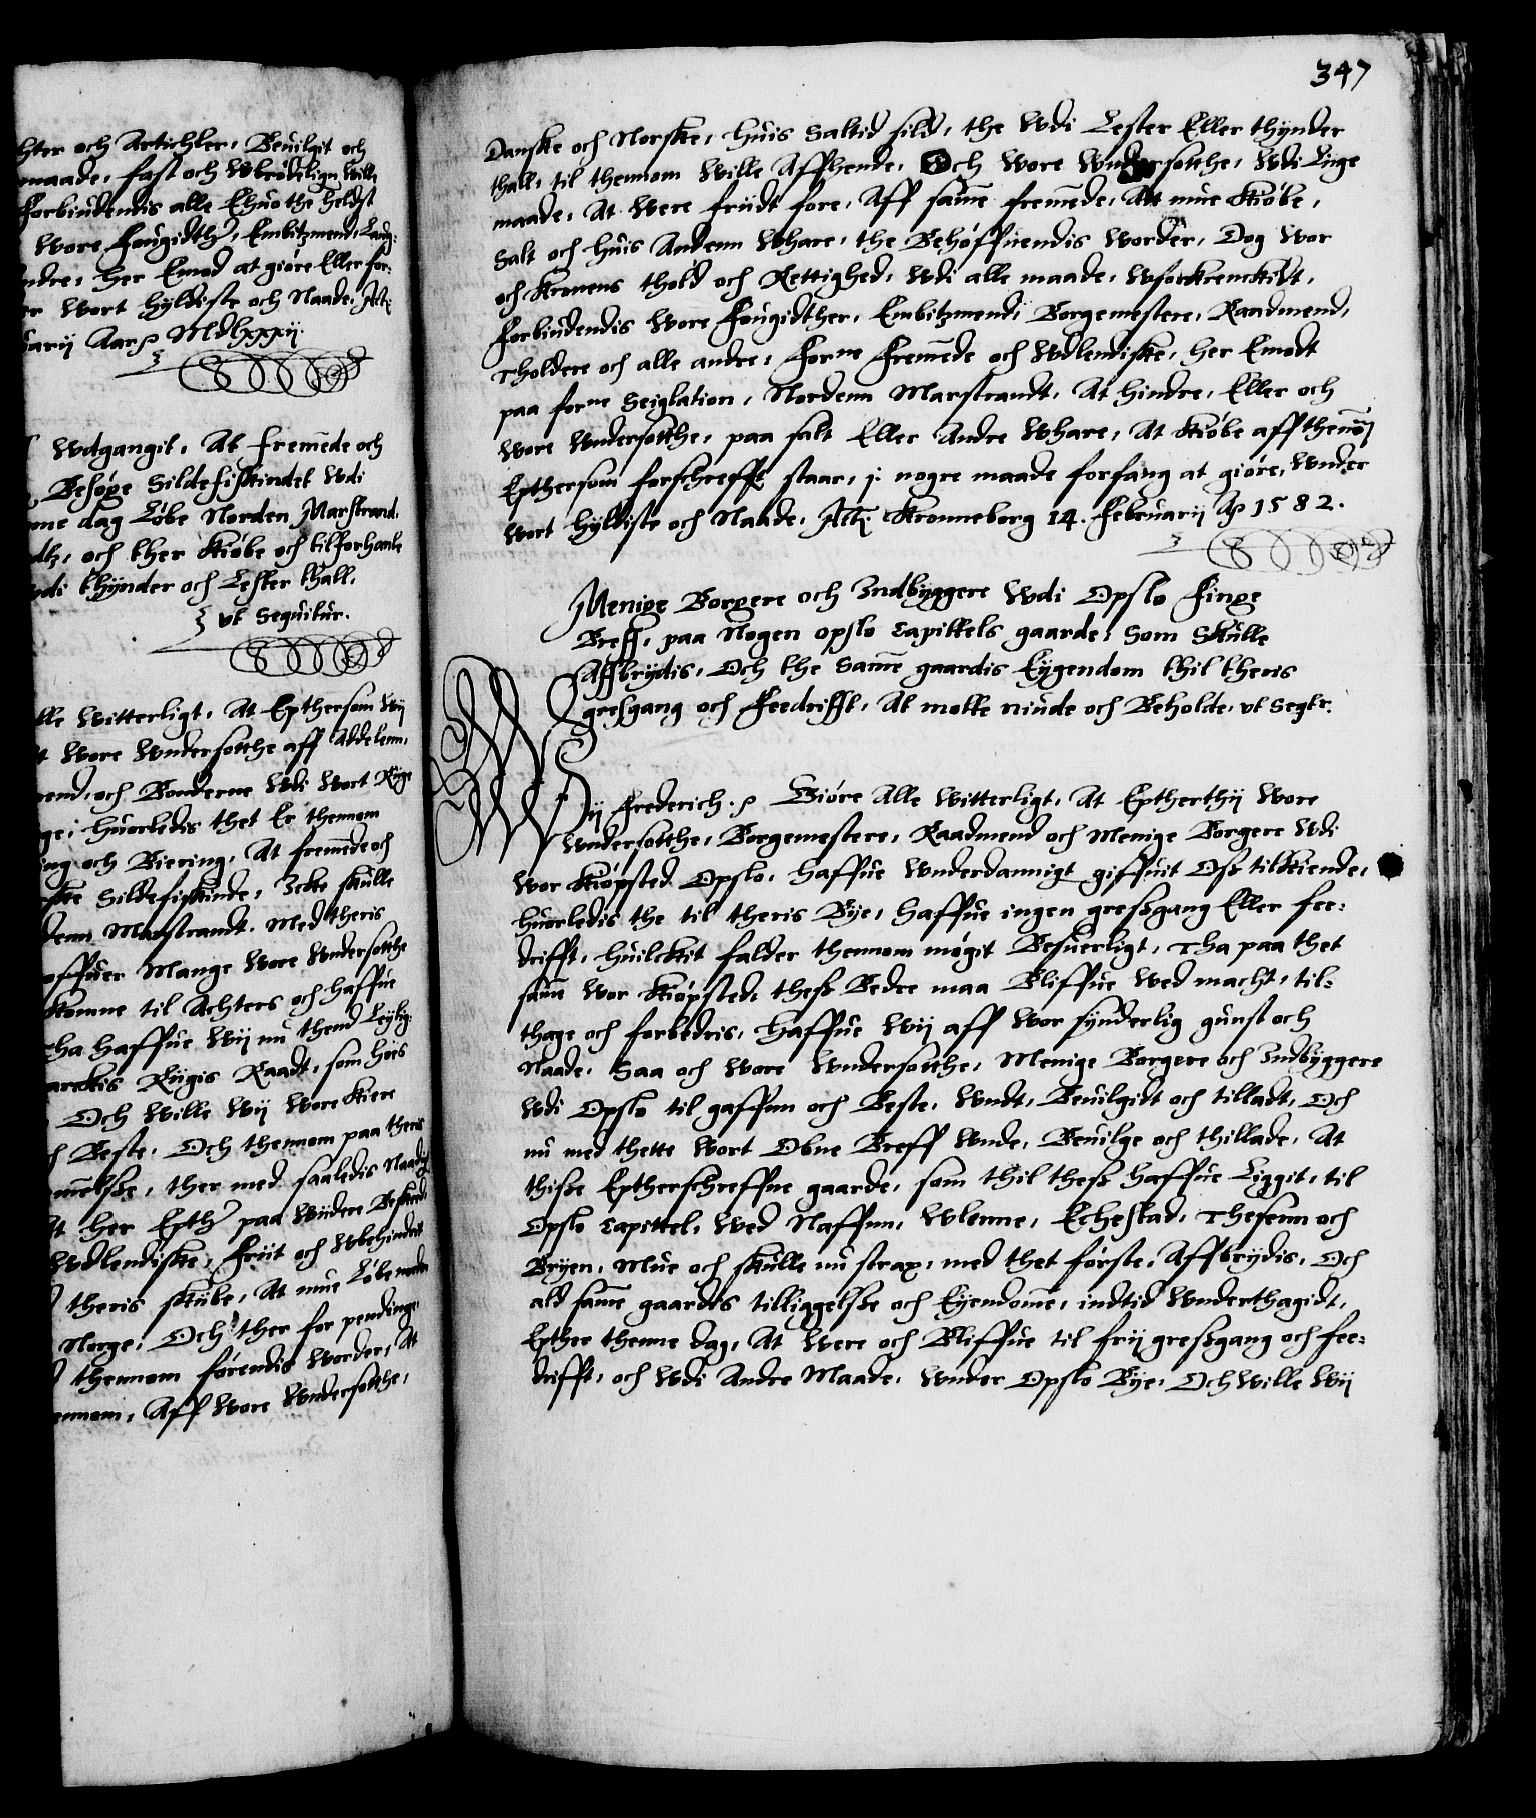 hter och Artichler, Beuilgit och
maade, fast och Wbrødelign wille
Forbiudendis alle Ehuo the heldst
Wore Fougidth, Embitzmend, Land:
ndre, her Emod at giøre Eller for:
er Wort hyldiste och Naade, Actj
uarij Aars MDlxxxij.
Wdgangit, At fremede och
Besøge Sildefiskindet Wdi
ne dag Løbe Norden Marstrand.
dtz, och ther Kiøbe och tilforhanle
wdi thynder och Lester thall.
vt Sequitur.
lle Witterligt, At Epthersom Wij
t Wore Wndersotthe aff Addelenn,
end, och Bønderne Wdi Wort Rige
ge, huorledis thet Er thennom
ing och Biering, At fremede och
ske Sildefiskinde, Icke skulle
denn Marstrandt. Med theris
offuer Mange Wore Wndersotthe
komme til Achters och haffue
ha haffue Wij nu themd Leylig:
arckis Riigis Raadt, som hoes
Och Wille Wij Wore kiere
h Beste, Och thennom paa theris
melse, ther med saaledis Naadig
t her Epther paa Wiidere Beskeed,
Wdlendiske, Friit och Wbehindrit
theris skiibe, At mue Løbe norden
Norge, Och ther for pendinge,
thennom førendis Worder, At
ennom, Aff Wore Wndersotthe,
347
Danske och Norske, huis Saltid sild, the Wdi Lester Eller thynder
thall, til thennom Wille Affhende, Och Wore Wndersotthe, Wdi Liige
maade, At Were friidt fore, Aff same fremede, Att mue Kiøbe,
Salt och huis Andenn Whare, the Behøffuendis Worder, Dog Wor
och Kronens thold och Rettighed, Wdi alle maade, Wforkrenckidt,
Forbiudendis Wore Fougidther, Embitzmend, Borgemestere, Raadmend,
Tholdere och alle andre, Forne Fremede och Wdlendiske, her Emodt
paa forne Seiglation, Nordenn Marstrandt, At hindre, Eller och
Wore Wndersotthe, paa salt Eller Andre Whare, At Kiøbe aff thennom
Epthersom forschreffit staar, j nogre maade forfang at giøre, Wnder
Wort hyldiste och Naade, Actj Kronneborg 14. Februarij As 1582.
Menige Borgere och Indbyggere Wdi Opslo Finge
Breff, paa Nogen opslo Capittels gaarde, Som Skulle
Affbrydis, Och the Same gaardis Eygendom thil theris
gresgang och Feedrifft, At motte niude och Beholde, vt Seqtr.
Wij Frederich.s Giøre Alle Witterligt, At Eptherthij Wore
Wndersotthe, Borgemestere, Raadmend och Menige Borgere Wdi
Wor Kiøpsted Opslo, haffue Wnderdannigt giffuit Oss tilkiende,
huorledis the til theris Bye, haffue ingen gressgang Eller fee:
drifft, huilckit falder thennom møgit Besuerligt, Tha paa thet
sam Wor Kiøpsted, thess Bedre maa Bliffue Wed macht, til:
thage och forbedris, haffue Wij aff Wor synderlig gunst och
Naade, Saa och Wore Wndersotthe, Menige Borgere och Indbyggere
Wdi Opslo til gaffnn och Beste, Wndt, Beuilgidt och tilladt, Och
nu med thette Wort Obne Breff Wnde, Beuilge och thillade, At
thisse Eptherschreffne gaarde, som thil thess haffue Liggit, til
Opslo Capittel, Wed Naffnn, Wlenne, Echestad, Thesenn och
Bryen, Mue och skulle nu strax, med thet første, Affbrydis, Och
ald same gaardts tilliggelsse och Eyendome, indtid Wnderthagidt,
Epther thenne dag, At Were och Bliffue til frij gressgang och fee:
drifft, och Wdi Andre Maade, Wnder Opslo Bye, Och Wille Wij